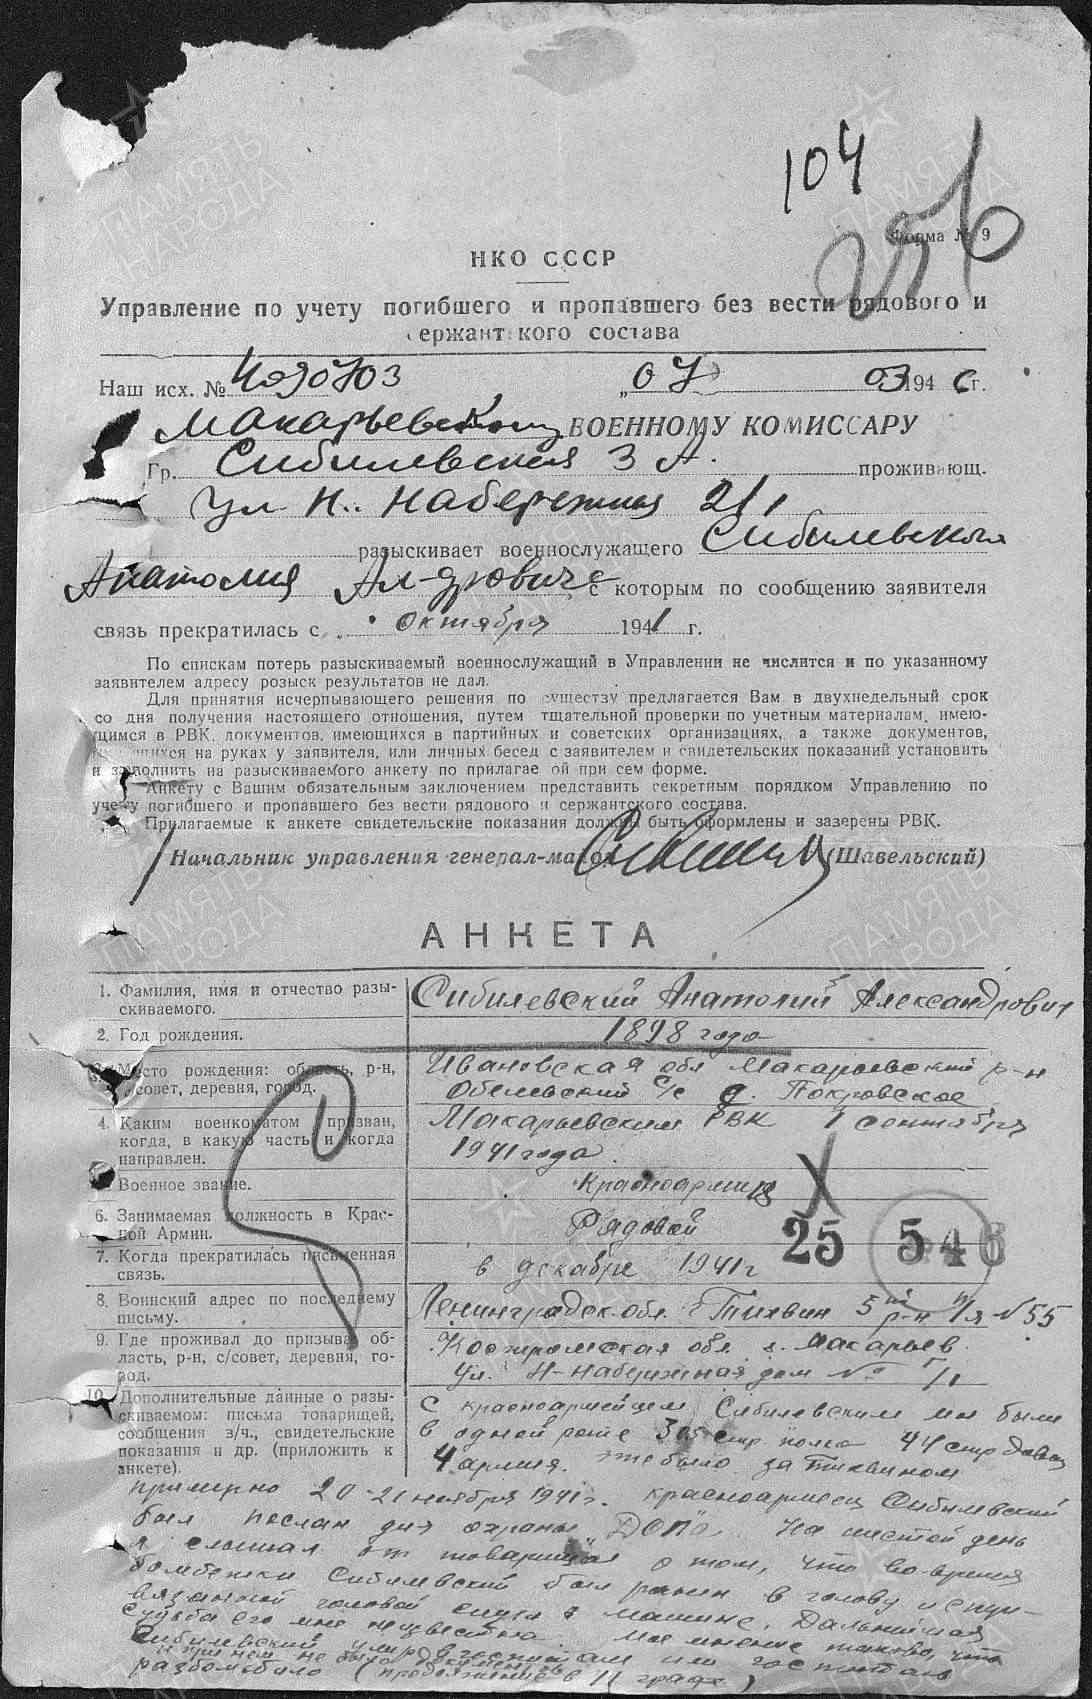 104
256
Форма № 9
НКО СССР
Управление по учету погибшего и пропавшего без вести рядового и
сержантского состава
Наш исх. № 4090703 „07 03 1946 г.
Макарьевскому ВОЕННОМУ КОМИССАРУ
Гр. Сибилевская З А. проживающ.
ул Н.. Набережная 21,
разыскивает военнослужащего Сибилевского
Анатолия Ал-дровича с которым по сообщению заявителя
связь прекратилась с октября 1941 г.
По спискам потерь разыскиваемый военнослужащий в Управлении не числится и по указанному
заявителем адресу розыск результатов не дал.
Для принятия исчерпывающего решения по существу предлагается Вам в двухнедельный срок
со дня получения настоящего отношения, путем тщательной проверки по учетным материалам, имею-
щимся в РВК, документов, имеющихся в партийных и советских организациях, а также документов,
имеющихся на руках у заявителя, или личных бесед с заявителем и свидетельских показаний установить
и заполнить на разыскиваемого анкету по прилагаемой при сем форме.
Анкету с Вашим обязательным заключением представить секретным порядком Управлению по
учету погибшего и пропавшего без вести рядового и сержантского состава.
Прилагаемые к анкете свидетельские показания должны быть оформлены и заверены РВК.
Начальник управления генерал-майор (Шавельский)
АНКЕТА
1. Фамилия, имя и отчество разы-
скиваемого.
Сибилевский Анатолий Александрович
2. Год рождения.
1898 года
3. Место рождения: область, р-н,
с/совет, деревня, город.
Ивановская обл Макарьевский р-н
Обелевский с/с д. Покровское
4. Каким военкоматом призван,
когда, в какую часть и когда
направлен.
Макарьевским РВК 1 сентября
1941 года.
5. Военное звание.
Красноармеец
6. Занимаемая должность в Крас-
ной Армии.
Рядовой
25 546
7. Когда прекратилась письменная
связь.
в декабре 1941 г
8. Воинский адрес по последнему
письму.
Ленинградск. обл. г Тихвин 5ый р-н п/я №55
9. Где проживал до призыва: об-
ласть, р-н, с/совет, деревня, го-
род.
Костромская обл г. Макарьев.
ул. Н-Набережная дом №
10. Дополнительные данные о разы-
скиваемом: письма товарищей,
сообщения в/ч., свидетельские
показания и др. (приложить к
анкете).
С красноармейцем Сибилевским мы были
в одной роте 305 стр полка 44 стр дивиз
4 армия. это было за Тихвином
примерно 20-21 ноября 1941 г. красноармеец Сибилевский
был послан для охраны "ДОПа. На шестой день
я слышал от товарищей о том, что во время
бомбежки Сибилевский был ранен в голову и с пере-
вязанной головой сидел в машине. Дальнейшая
судьба его мне неизвестна. Мое мнение таково, что
Сибилевский умер в госпитале или госпиталь
и при нем не было документов
разбомбило (продолжение в 11 графе)
ПАМЯТЬ
НАРОДА